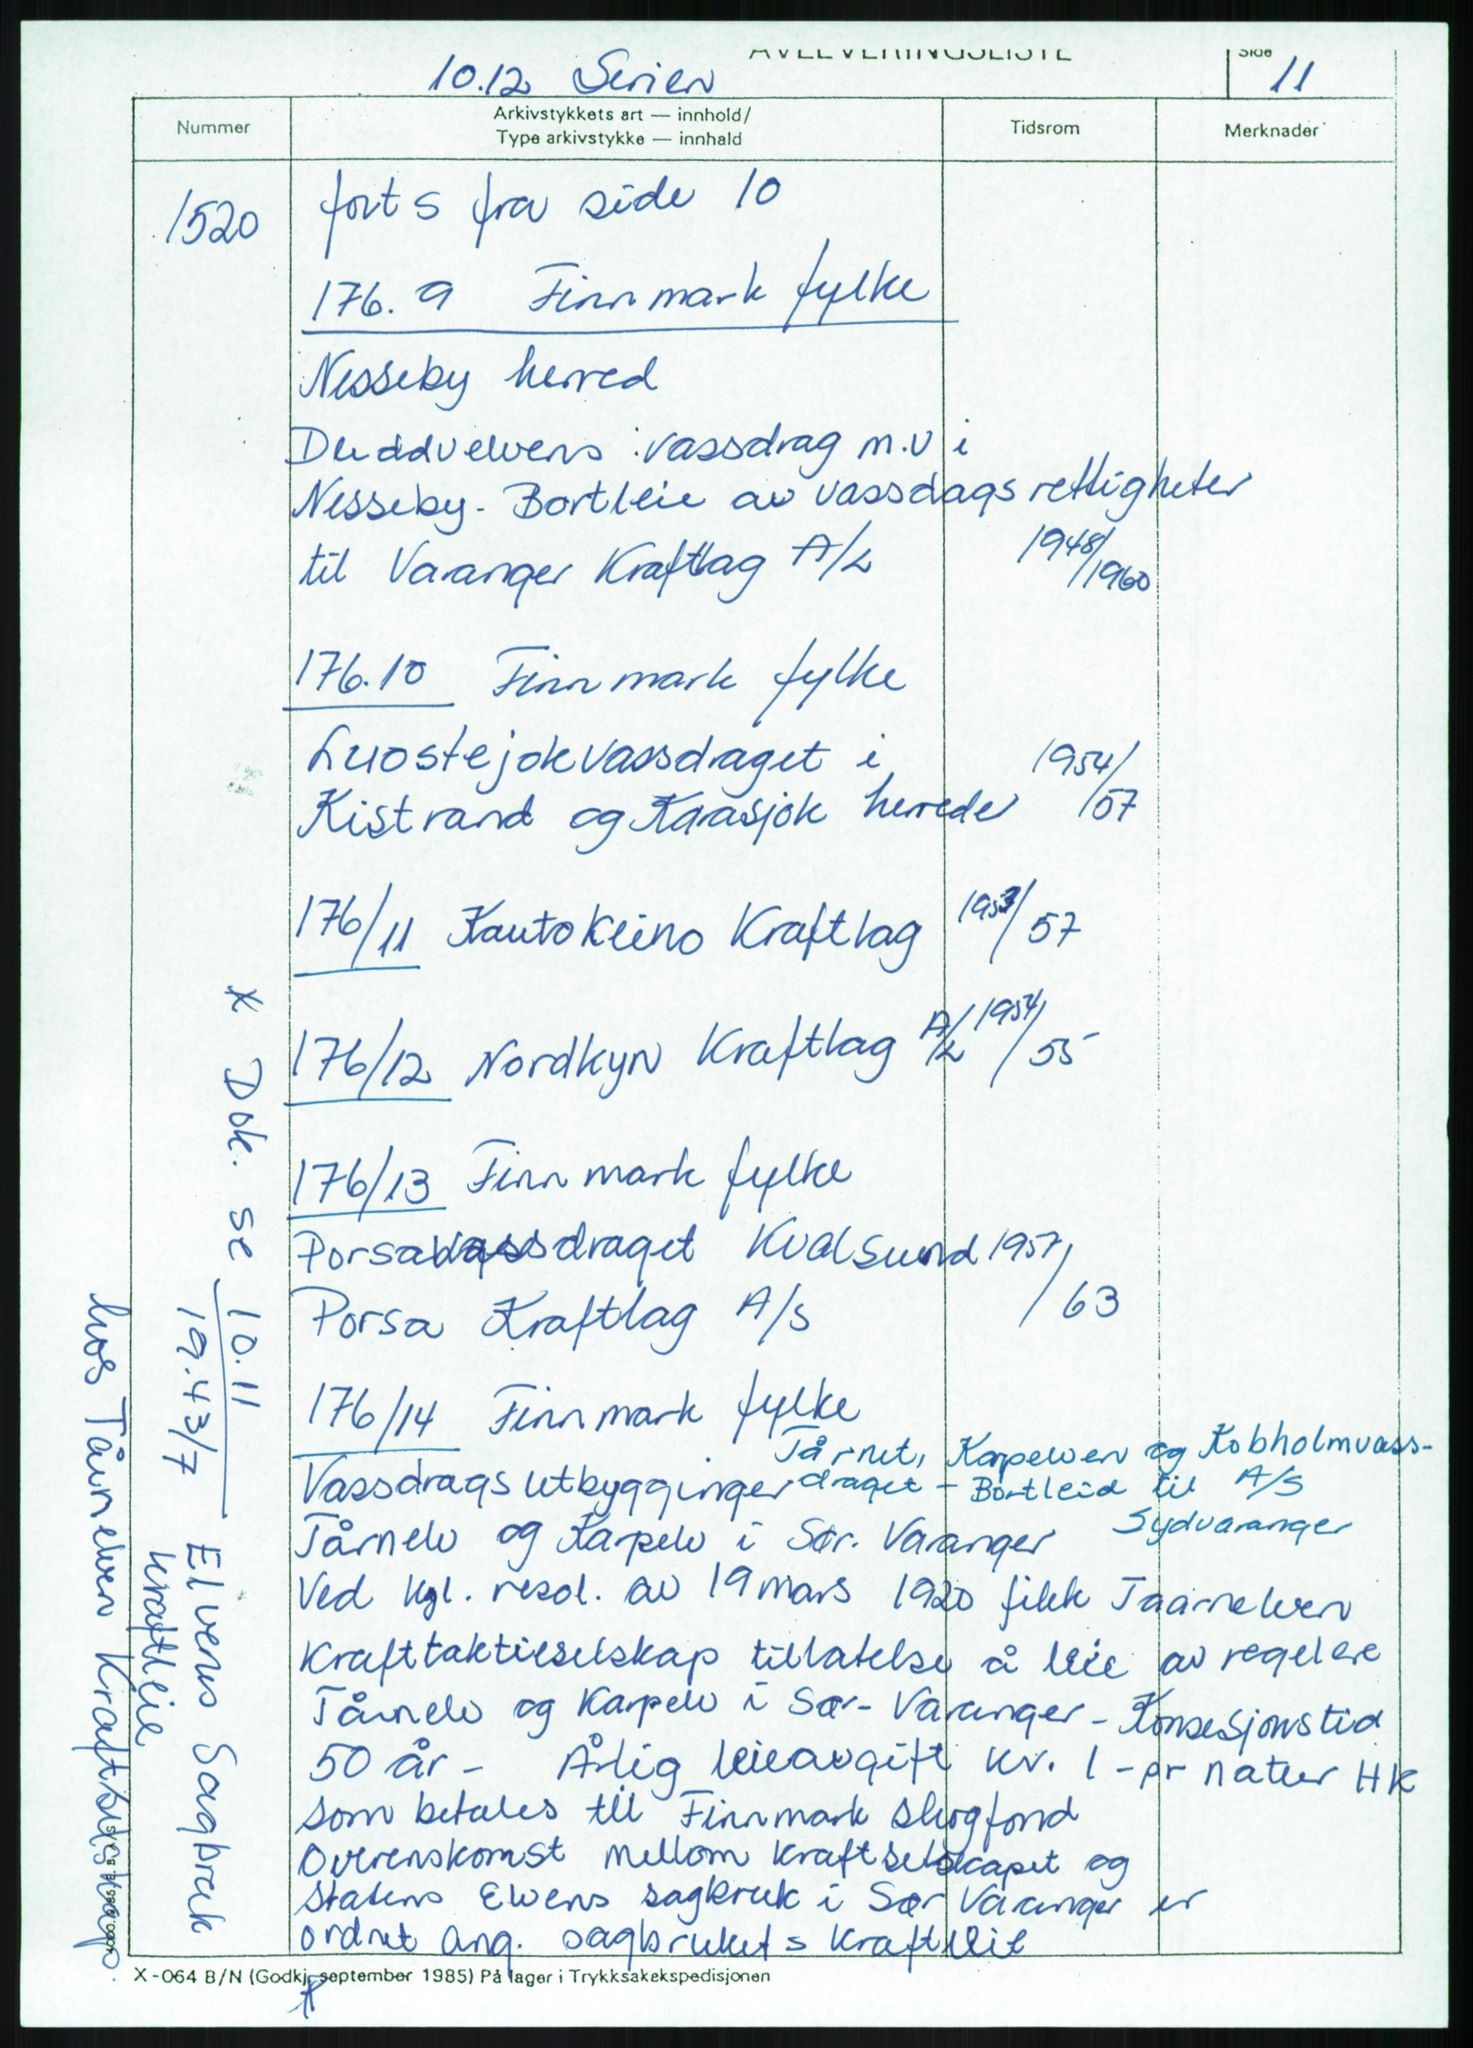 AVLEVERINGSLISTE
Side 11
10.12 Serien
Nummer
Arkivstykkets art — innhold/
Type arkivstykke — innhald
Tidsrom
Merknader
1520
forts fra side 10
176.9 Finnmark fylke
Nesseby herred
Duddvelvens vassdrag m.v i
Nesseby - Bortleie av vassdagsrettigheter
til Varanger Kraftlag A/L 1948/1960
176.10 Finnmark fylke
Luostejokvassdraget i 1954/
Kistrand og Karasjok herreder 57
176/11 Kautokeino Kraftlag 1953/57
176/12 Nordkyn Kraftlag A/L 1954/55
176/13 Finnmark fylke
Porsavassdraget Kvalsund 1957/
Porsa Kraftlag A/S 63
176/14 Finnmark fylke
Tårnet, Karpelven og Kobholmvass-
Vassdragsutbygginger draget - Bortleid til A/S
Tårnelv og Karpelv i Sør. Varanger Sydvaranger
Ved kgl. resol. av 19 mars 1920 fikk Taarnelven
Krafttaktieselskap tillatelse å leie av regulere
Tårnelv og Karpelv i Sør-Varanger - Konsesjonstid
50 år - Årlig leieavgift kr. 1 - pr natur HK
som betales til Finnmark skogfond
Overenskomst mellom kraftselskapet og
Statens Elvens sagbruk i Sør Varanger er
ordnet ang. sagbrukets kraftleie
x
X-064 B/N (Godkj. september 1985) På lager i Trykksakekspedisjonen
x Dok. se 10.11
19.43/7 Elvens Sagbruk
kraftleie
hos Tårnelven Kraftselskap.